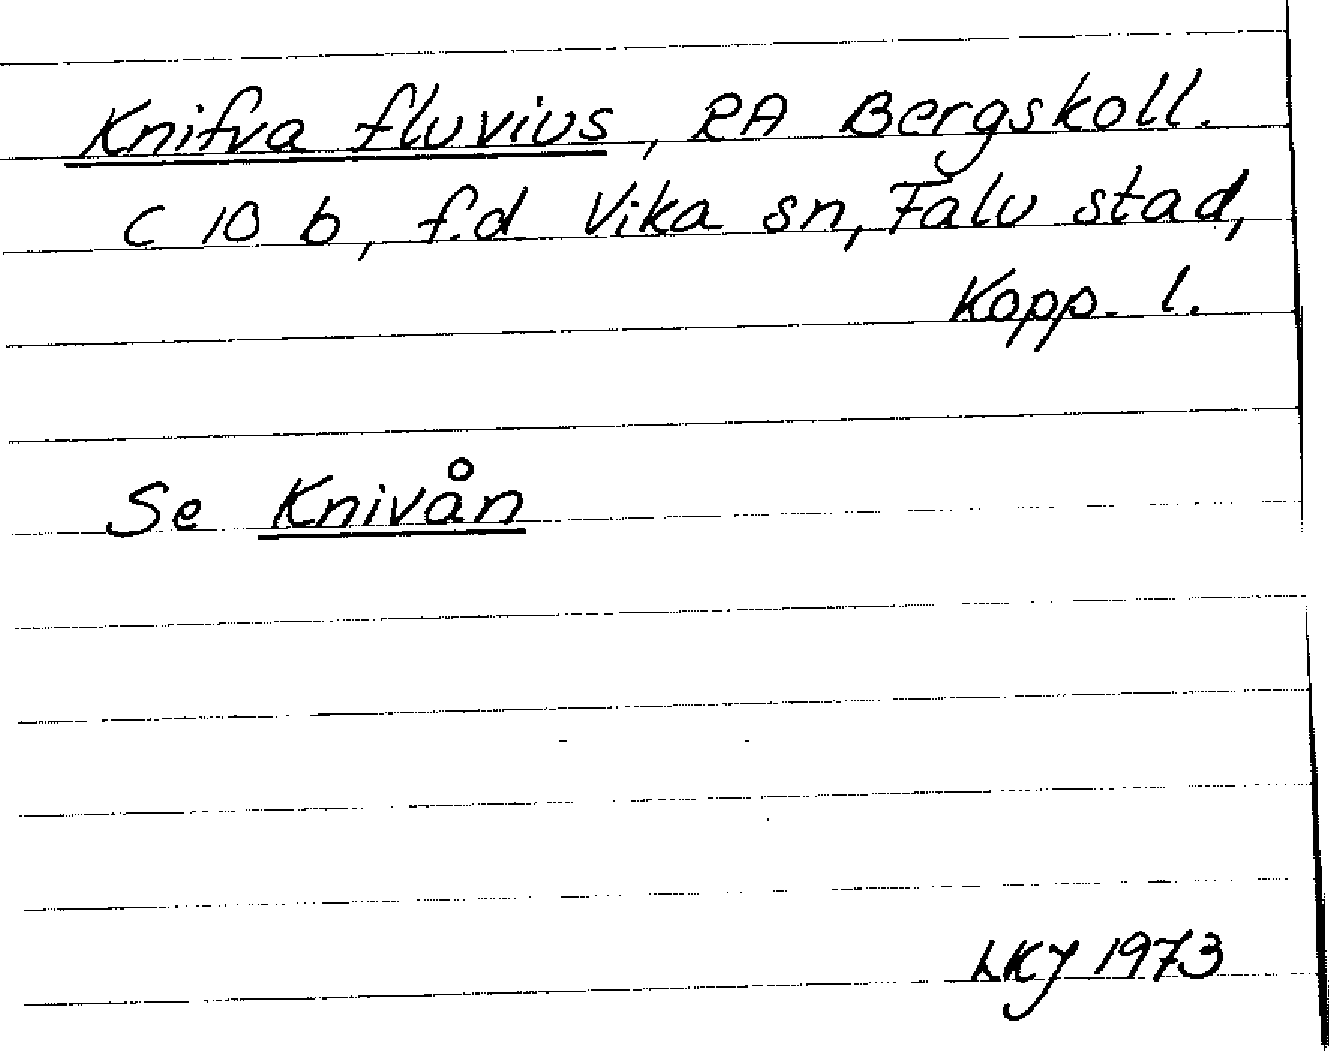 Knifva fluvius, RA Bergskoll.
C 10 b, f.d Vika sn, Falu stad,
Kopp. l.
Se Knivån
LKJ 1973